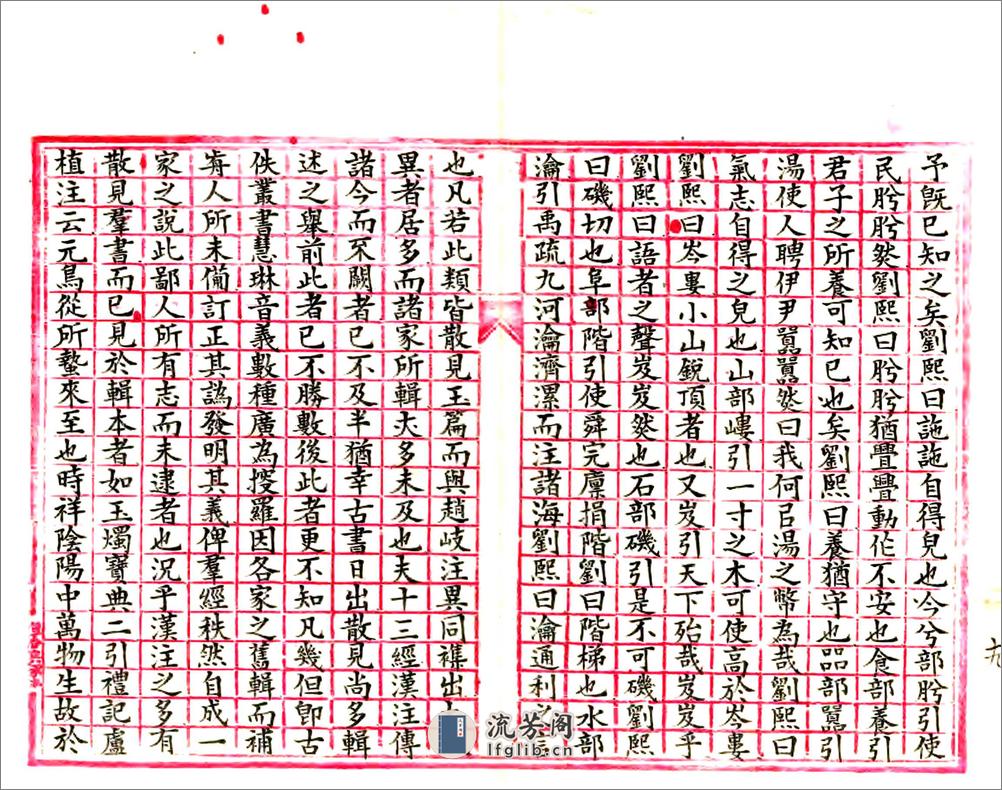 予既已知之矣劉熙曰訑訑自得皃也今兮部肹引使
民肹肹然劉熙曰肹肹猶疊疊動作不安也食部養引
君子之所養可知已也矣劉熙曰養猶守也㗊部嚻引
湯使人聘伊尹嚻嚻然曰我何㠯湯之幣為哉劉熙曰
氣志自得之皃也山部嶁引一寸之木可使高於岑婁
劉熙曰岑婁小山銳頂者也又岌引天下殆哉岌岌乎
劉熙曰語者之聲岌岌然也石部磯引是不可磯劉熙
曰磯切也阜部階引使舜完廩捐階劉曰階梯也水部
瀹引禹疏九河瀹濟漯而注諸海劉熙曰瀹通利之
也凡若此類皆散見玉篇而與趙岐注異同襍出
異者居多而諸家所輯大多未及也夫十三經漢注傳
諸今而不闕者已不及半猶幸古書日出散見尚多輯
述之舉前此者已不勝數後此者更不知凡幾但卽古
佚叢書慧琳音義數種廣為搜羅因各家之舊輯而補
歬人所未備訂正其譌發明其義俾羣經秩然自成一
家之說此鄙人所有志而未逮者也況乎漢注之多有
散見羣書而已見於輯本者如玉燭寶典二引禮記盧
植注云元鳥從所蟄來至也時祥陰陽中萬物生故於
九
流芳阁
lfglib.cn